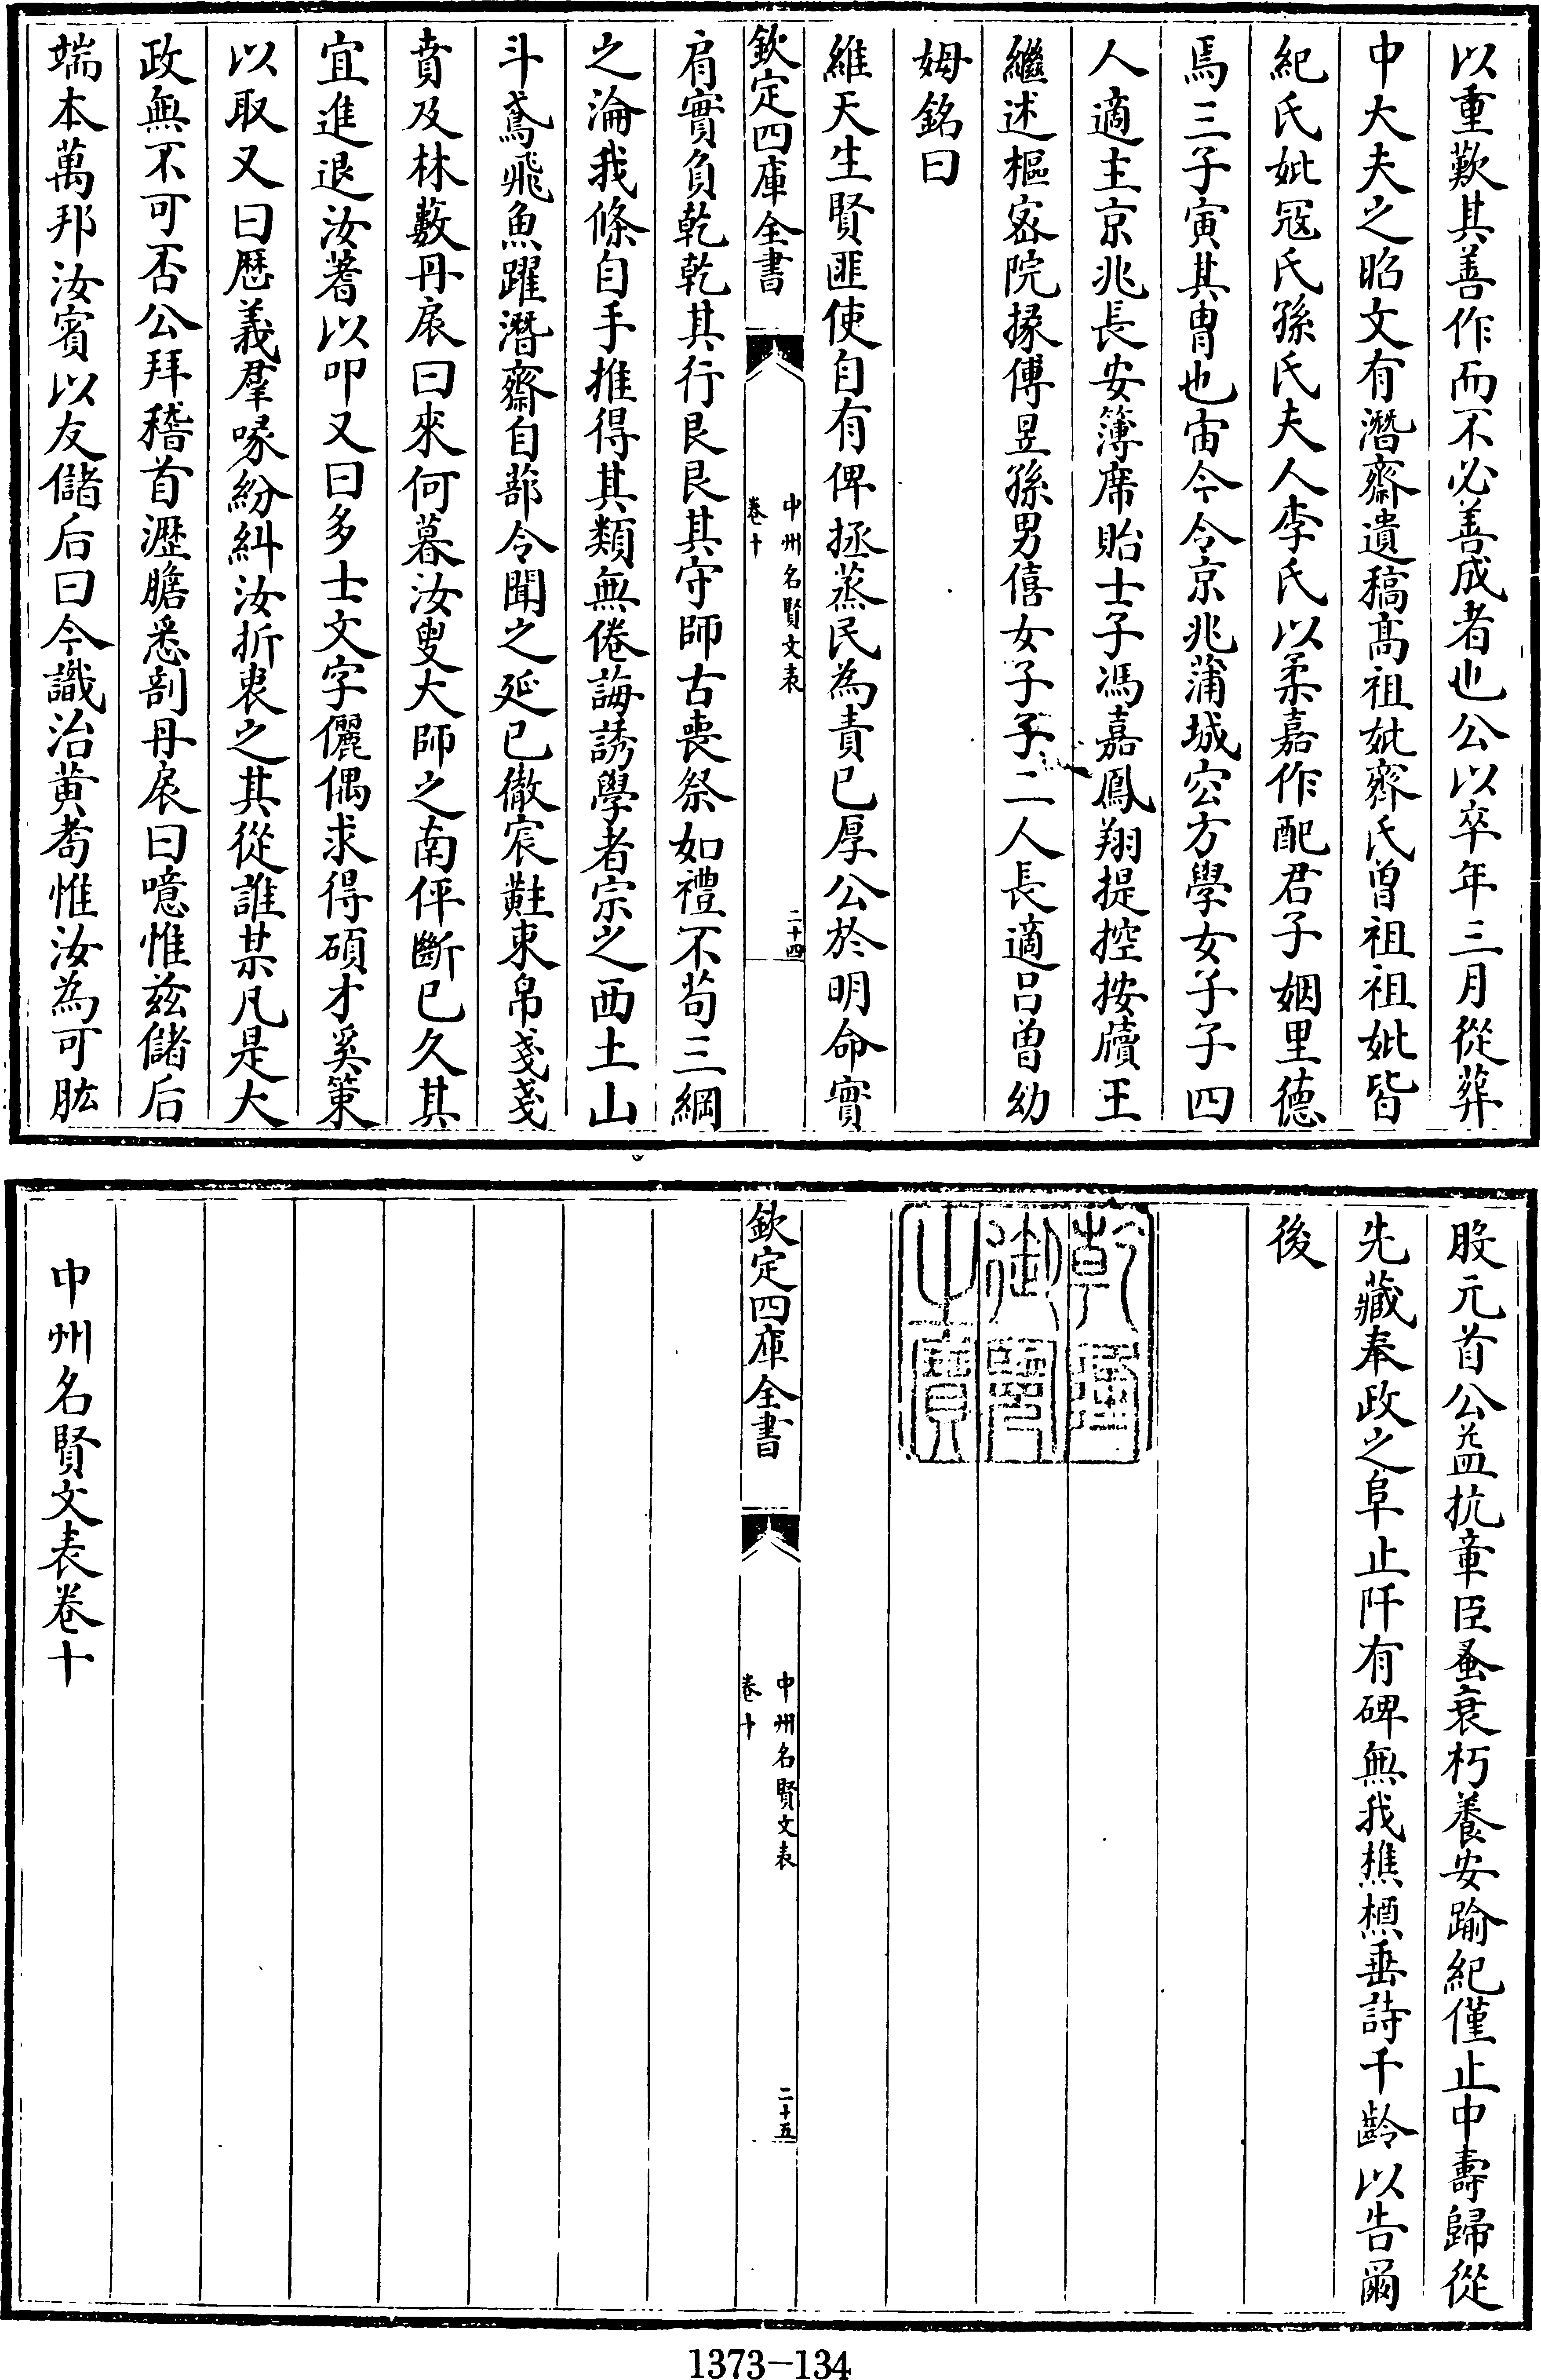 以重歎其善作而不必善成者也公以卒年三月從葬
中大夫之昭文有潛齋遺稿高祖妣齊氏曾祖祖妣皆
紀氏妣冦氏孫氏夫人李氏以柔嘉作配君子姻里德
焉三子寅其胄也宙今令京兆蒲城宏方學女子子四
人適主京兆長安簿席貽士子馮嘉鳳翔提控按牘王
繼述樞宻院掾傅昱孫男僖女子子二人長適吕曾幼
姆銘曰
維天生賢匪使自有俾拯蒸民為責已厚公於明命實
欽定四庫全書
中州名賢文表
卷十
二十四
肩實負乾乾其行艮艮其守師古喪祭如禮不茍三綱
之淪我條自手推得其類無倦誨誘學者宗之西土山
斗鳶飛魚躍潛齋自蔀令聞之延已徹宸黈東帛戔戔
賁及林藪丹扆曰來何暮汝叟大師之南伻斷已久其
宜進退汝蓍以叩又曰多士文字儷偶求得碩才奚策
以取又曰歴義羣喙紛糾汝折衷之其從誰某凡是大
政無不可否公拜稽首瀝膽悉剖丹扆曰噫惟兹儲后
端本萬邦汝賓以友儲后曰今識治黄耉惟汝為可肱
股元首公益抗章臣蚤衰朽養安踰紀僅止中壽歸從
先藏奉政之阜止阡有碑無我樵槱垂詩千齡以告爾
後
乾隆御覽之寶
欽定四庫全書
中州名賢文表
卷十
二十五
中州名賢文表卷十
1373-134